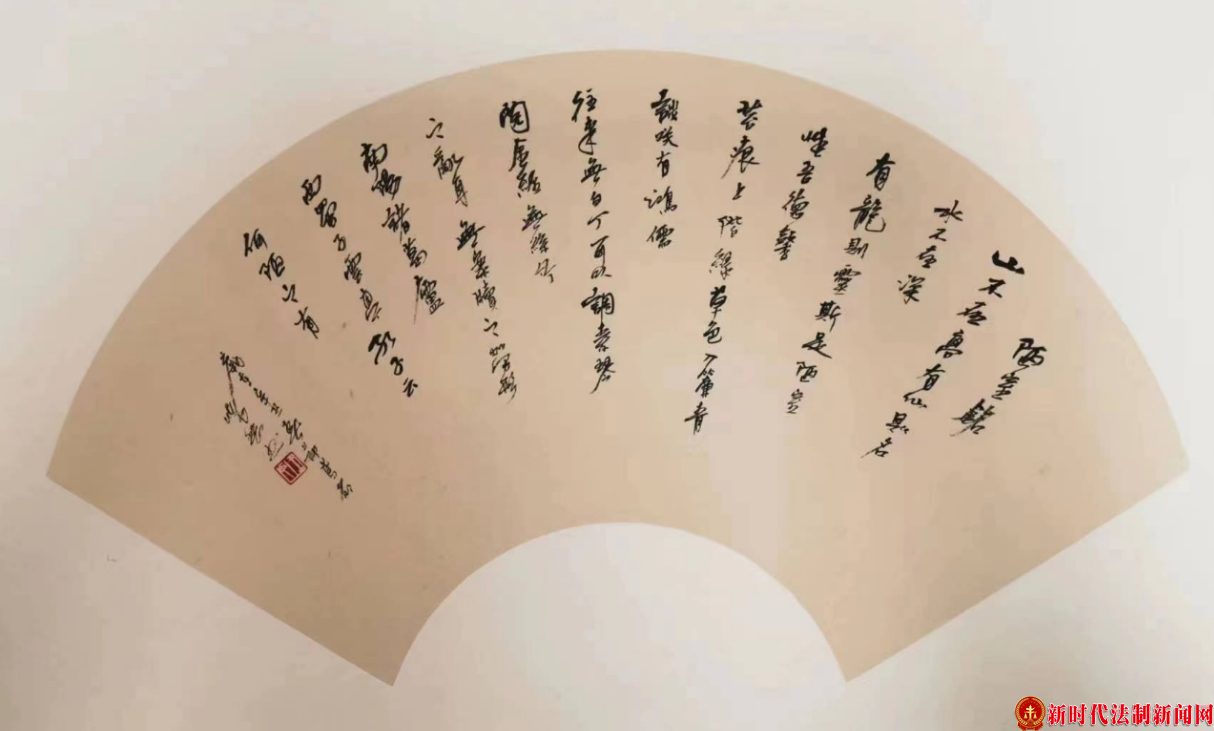 陋室銘
山不在高有仙則名
水不在深
有龍則靈斯是陋室
惟吾德馨
苔痕上階緑草色入簾青
談咲有鴻儒
往來無白丁可以調素琴
閲金經無絲竹
之亂耳無案牘之勞形
南陽諸葛廬
西蜀子雲亭孔子云
何陋之有
新时代法制新闻网